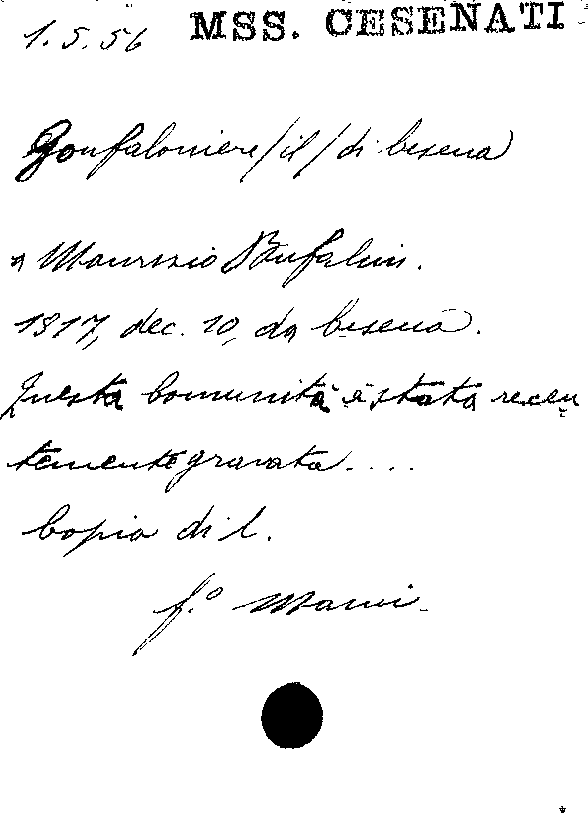 1.5.56 MSS. CESENATI
Gonfaloniere/il/di Cesena
a Maurizio Bufalini.
1817, dec. 10, da Cesena.
Questa Comunità è stata recen
temente gravata....
Copia di l.
f.º